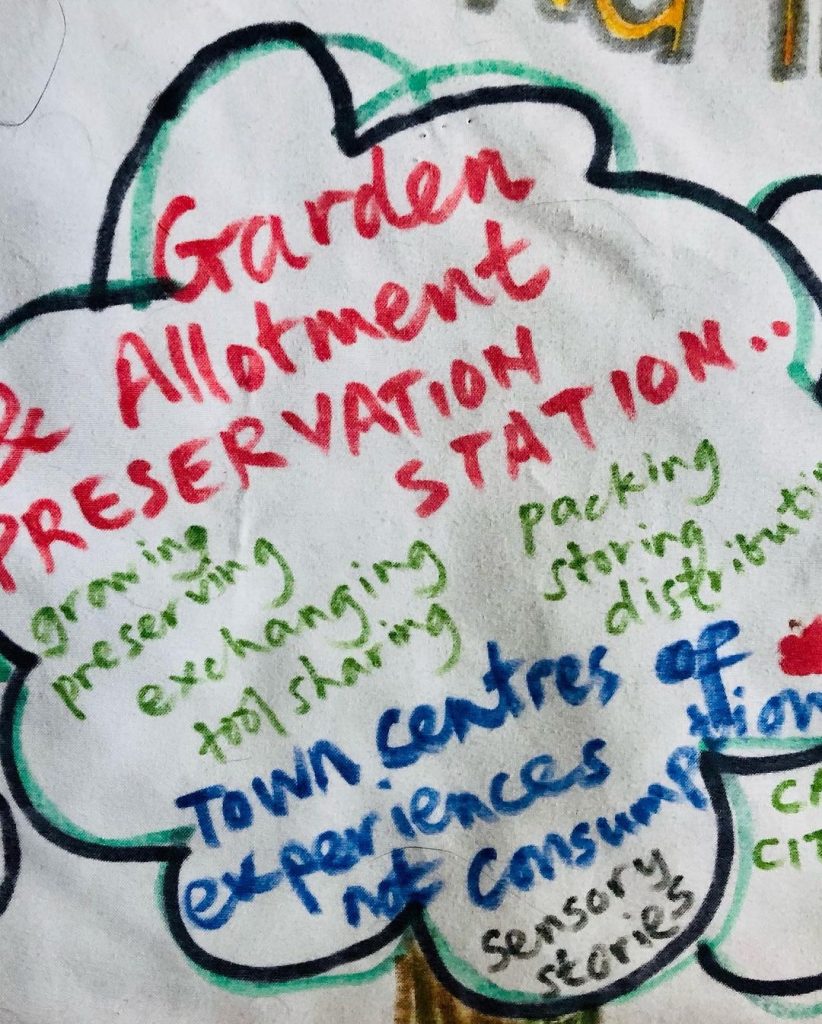 Garden
& Allotment
PRESERVATION
STATION..
growing
preserving
exchanging
tool sharing
packing
storing
Town centres of
experiences
not consumption
sensory
stories